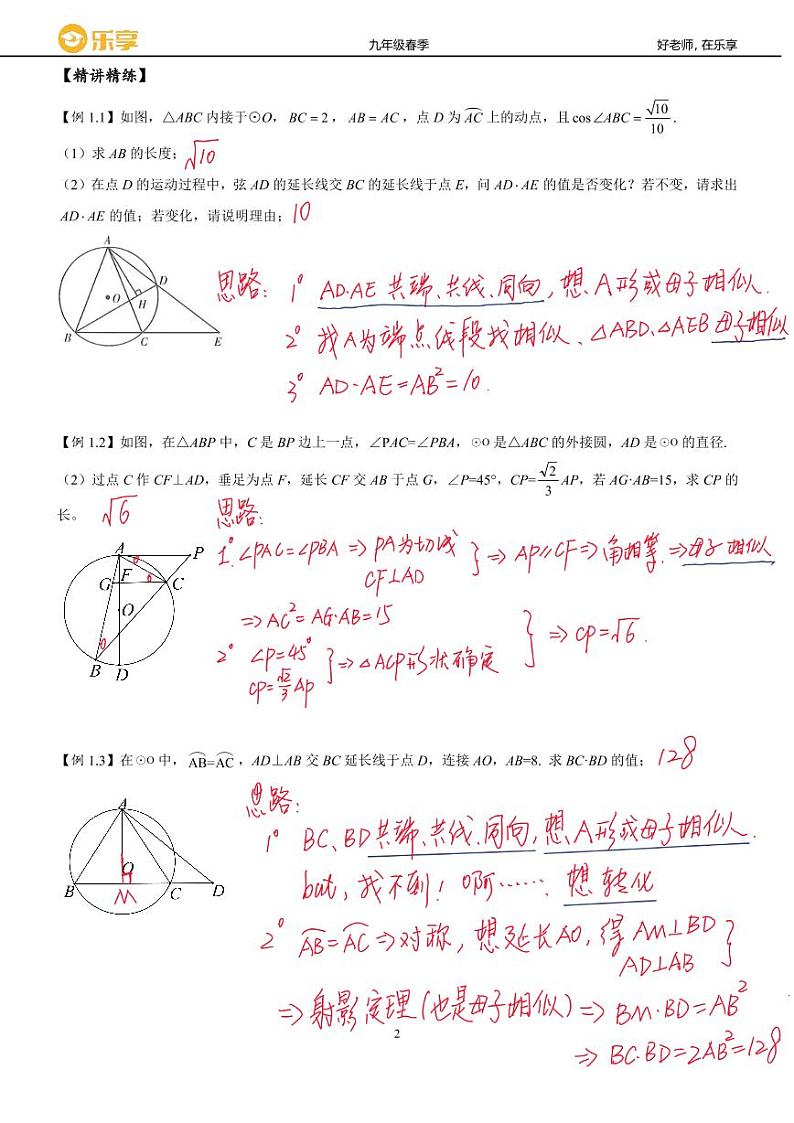 乐享 九年级春季 好老师, 在乐享
【精讲精练】
【例 1.1】如图，△ABC 内接于⊙O， BC = 2 ， AB = AC ，点 D 为 AC 上的动点，且 cos∠ABC = √10/10 .
（1）求 AB 的长度； √10
（2）在点 D 的运动过程中，弦 AD 的延长线交 BC 的延长线于点 E，问 AD · AE 的值是否变化？若不变，请求出
AD · AE 的值；若变化，请说明理由； 10
A
D
O
H
B
C
E
思路： 1° AD·AE 共端、共线、同向，想 A形或母子相似.
2° 找A为端点线段找相似、△ABD、△AEB 母子相似
3° AD·AE=AB²=10.
【例 1.2】如图，在△ABP 中，C 是 BP 边上一点，∠PAC=∠PBA，⊙O 是△ABC 的外接圆，AD 是⊙O 的直径.
（2）过点 C 作 CF⊥AD，垂足为点 F，延长 CF 交 AB 于点 G，∠P=45°，CP=√2/3 AP，若 AG·AB=15，求 CP 的
长。 √6
思路：
A
P
G
F
C
O
B
D
1° ∠PAC=∠PBA ⇒ PA为切线
CF⊥AD
} ⇒ AP∥CF ⇒ 角相等. ⇒ 母子相似
⇒ AC²=AG·AB=15
2° ∠P=45°
CP=√2/3 AP
} ⇒ △ACP形状确定
} ⇒ CP=√6.
【例 1.3】在⊙O 中， AB=AC ，AD⊥AB 交 BC 延长线于点 D，连接 AO，AB=8. 求 BC·BD 的值； 128
A
O
B
M
C
D
思路：
1° BC、BD 共端、共线、同向，想A形或母子相似.
but，找不到！啊……. 想转化
2° AB=AC ⇒ 对称，想延长AO，得 AM⊥BD
AD⊥AB
}
⇒ 射影定理（也是母子相似）⇒ BM·BD=AB²
⇒ BC·BD=2AB²=128
2